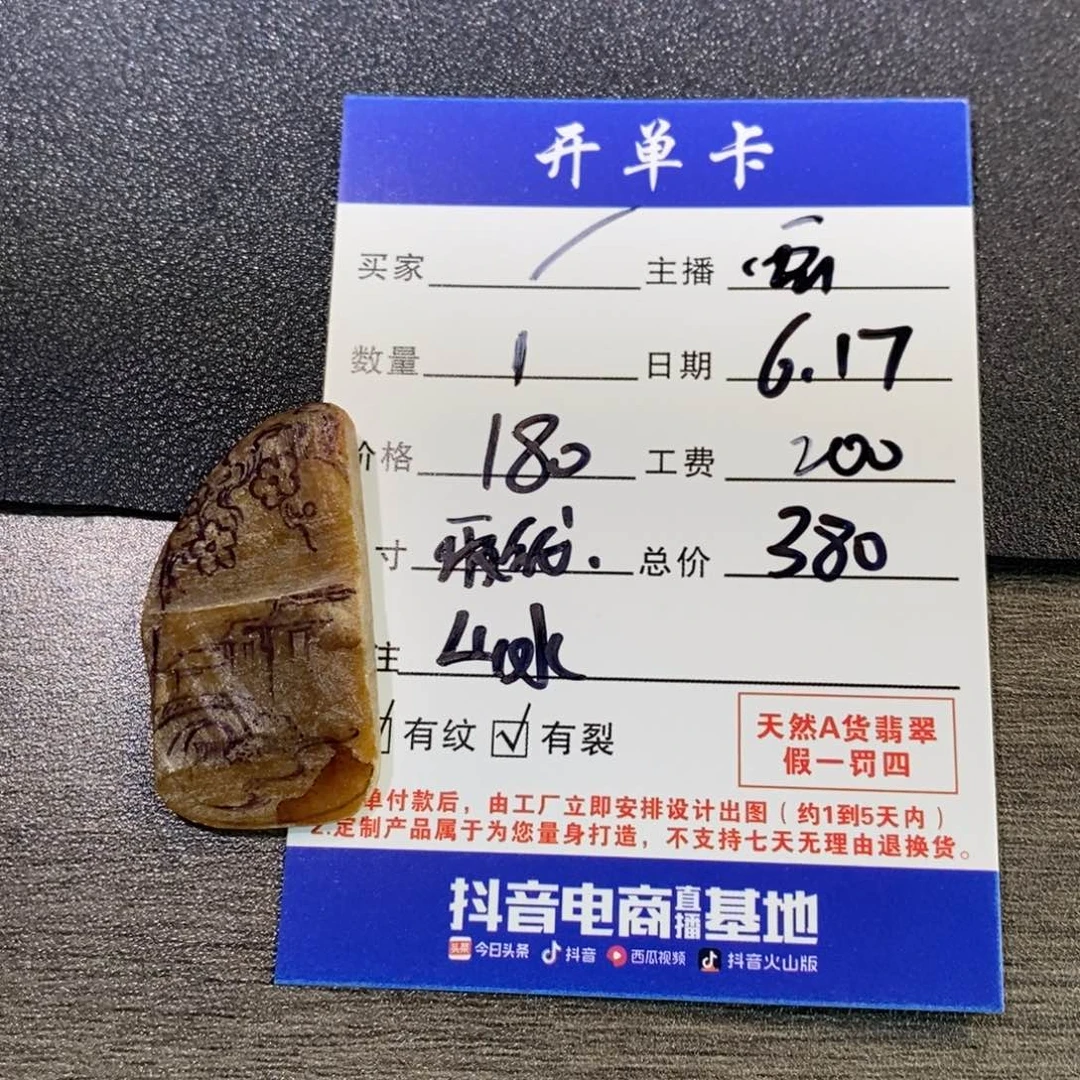 开单卡
买家 主播
数量 1 日期 6.17
价格 180 工费 200
寸 总价 380
注 山水
有纹 ☑ 有裂
天然A货翡翠
假一罚四
单付款后，由工厂立即安排设计出图（约1到5天内）
2.定制产品属于为您量身打造，不支持七天无理由退换货。
抖音电商直播基地
头条 今日头条 抖音 西瓜视频 抖音火山版